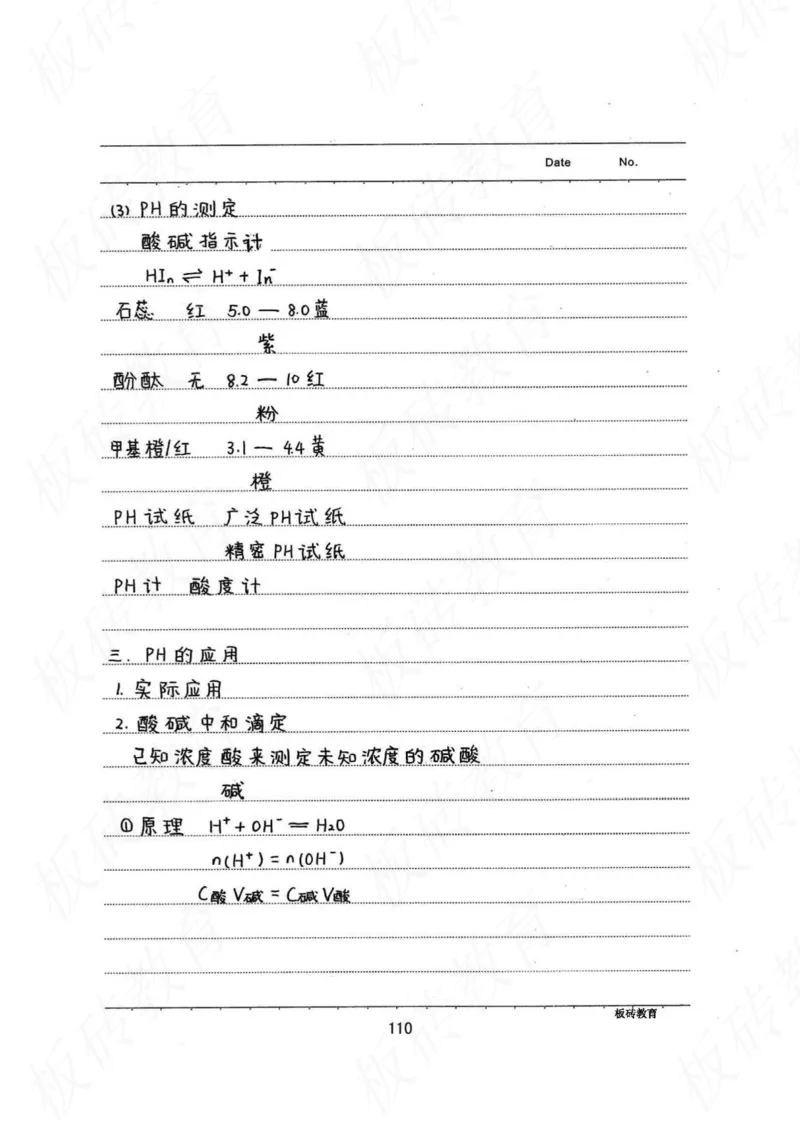 Date No.
(3) PH的测定
酸碱指示计
HIn ⇌ H⁺ + In⁻
石蕊 红 5.0 — 8.0 蓝
紫
酚酞 无 8.2 — 10 红
粉
甲基橙/红 3.1 — 4.4 黄
橙
PH试纸 广泛PH试纸
精密PH试纸
PH计 酸度计
三. PH的应用
1. 实际应用
2. 酸碱中和滴定
已知浓度酸来测定未知浓度的碱酸
碱
① 原理 H⁺ + OH⁻ = H₂O
n(H⁺) = n(OH⁻)
C酸 V碱 = C碱 V酸
板砖教育
110